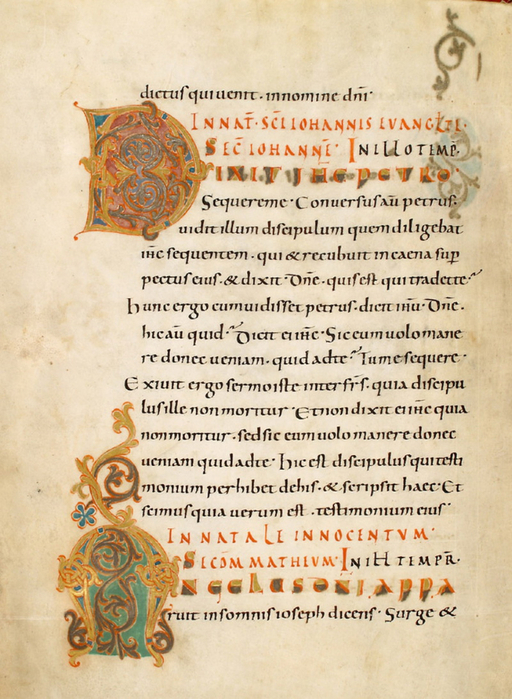 dictus qui uenit · in nomine dñi ·
IN NAT̄ · SC̄I IOHANNIS EUANGL̄I ·
SEC̄ IOHANNĒ · IN ILLO TEMP̄ ·
DIXIT IHC PETRO ·
Sequere me · Conuersus aū petrus ·
uidit illum discipulum quem diligebat
ihc̄ sequentem · qui & recubuit in caena sup̄
pectus eius · & dixit · Dñe · quis est qui tradet te ·
Hunc ergo cum uidisset petrus · dicit ihū · Dñe ·
hic aū quid · Dicit ei ihc̄ · Sic eum uolo mane
re donec ueniam · quid ad te · Tu me sequere ·
Exiuit ergo sermo iste inter fr̄s · quia discipu
lus ille non moritur · Et non dixit ei ihc̄ quia
non moritur · sed sic eum uolo manere donec
ueniam quid ad te · hic est discipulus qui testi
monium perhibet de his · & scripsit haec · Et
scimus quia uerum est · testimonium eius ·
IN NATALE INNOCENTUM ·
SECDM MATHEUM · IN ILL TEMPR̄ ·
ANGELUS DNI APPA
ruit in somnis ioseph dicens · Surge &